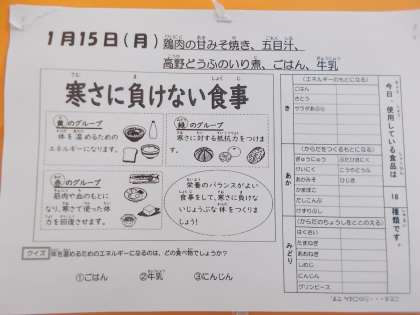 1月15日(月) 鶏肉の甘みそ焼き、五目汁、
高野どうふのいり煮、ごはん、牛乳
寒さに負けない食事
黄のグループ
体を温めるための
エネルギーになります。
緑のグループ
寒さに対する抵抗力をつけます。
赤のグループ
筋肉や血のもとに
なり、寒さで使った体
力を回復させます。
栄養のバランスがよい
食事をして、寒さにまけな
いじょうぶな体をつくりま
しょう!
クイズ 体を温めるためのエネルギーになるのは、どの食べ物でしょうか?
①ごはん ②牛乳 ③にんじん
今日使用している食品は
18
種類です
き
(エネルギーのもとになる)
ごはん
さとう
サラダあぶら
あか
(からだをつくるもとになる)
ぎゅうにゅう ぶたひきにく
けいにく こうやどうふ
あかみそ ひじき
かまぼこ
だしこんぶ
けずりぶし
みどり
(からだのちょうしをととのえる)
はくさい
たまねぎ
あおねぎ
しめじ
にんじん
グリンピース